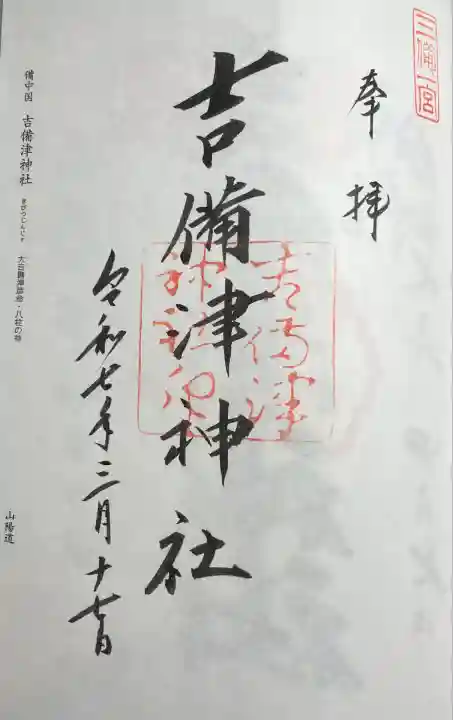 三備一宮
奉拝
吉備津神社
令和七年三月十七日
備中国 吉備津神社 きびつじんじゃ 大吉備津彦命・八柱の神
山陽道